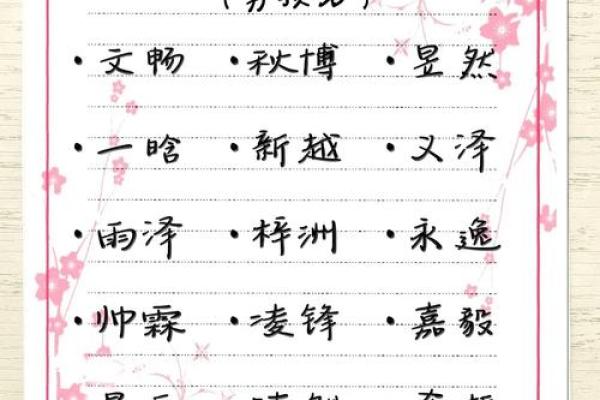 （男孩名）
·文畅 ·秋博 ·昱然
·一晗 ·新越 ·义泽
·雨泽 ·梓洲 ·永逸
·帅霖 ·凌锋 ·嘉毅